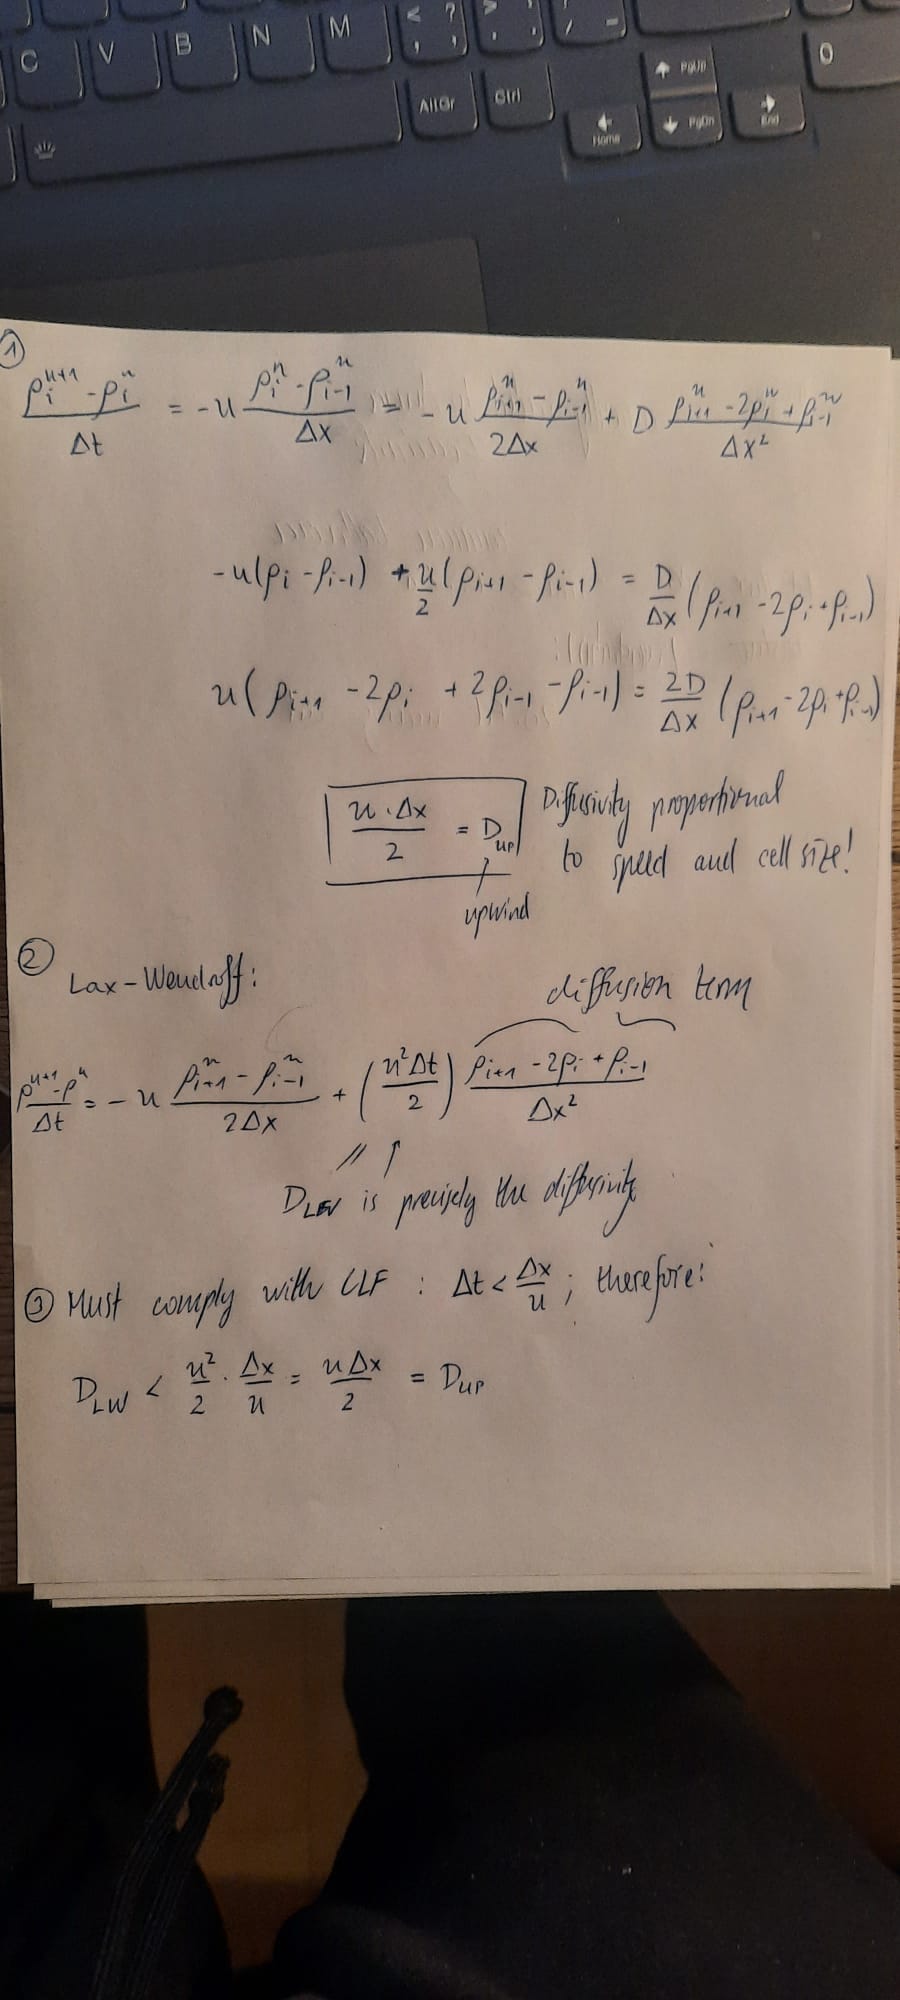 C V B N M < , ? ; > : / _ -
AltGr Ctrl PgUp 0
Home PgDn End
①
(ρᵢⁿ⁺¹ - ρᵢⁿ)/Δt = -u (ρᵢⁿ - ρᵢ₋₁ⁿ)/Δx = -u (ρᵢ₊₁ⁿ - ρᵢ₋₁ⁿ)/2Δx + D (ρᵢ₊₁ⁿ - 2ρᵢⁿ + ρᵢ₋₁ⁿ)/Δx²
-u(ρᵢ - ρᵢ₋₁) + u/2 (ρᵢ₊₁ - ρᵢ₋₁) = D/Δx (ρᵢ₊₁ - 2ρᵢ + ρᵢ₋₁)
u(ρᵢ₊₁ - 2ρᵢ + 2ρᵢ₋₁ - ρᵢ₋₁) = 2D/Δx (ρᵢ₊₁ - 2ρᵢ + ρᵢ₋₁)
u·Δx/2 = D_up Diffusivity proportional
to speed and cell size!
upwind
②
Lax-Wendroff:
diffusion term
(ρⁿ⁺¹ - ρⁿ)/Δt = -u (ρᵢ₊₁ⁿ - ρᵢ₋₁ⁿ)/2Δx + (u²Δt/2) (ρᵢ₊₁ - 2ρᵢ + ρᵢ₋₁)/Δx²
D_LW is precisely the diffusivity
③ Must comply with CLF : Δt < Δx/u ; therefore:
D_LW < u²/2 · Δx/u = uΔx/2 = D_up